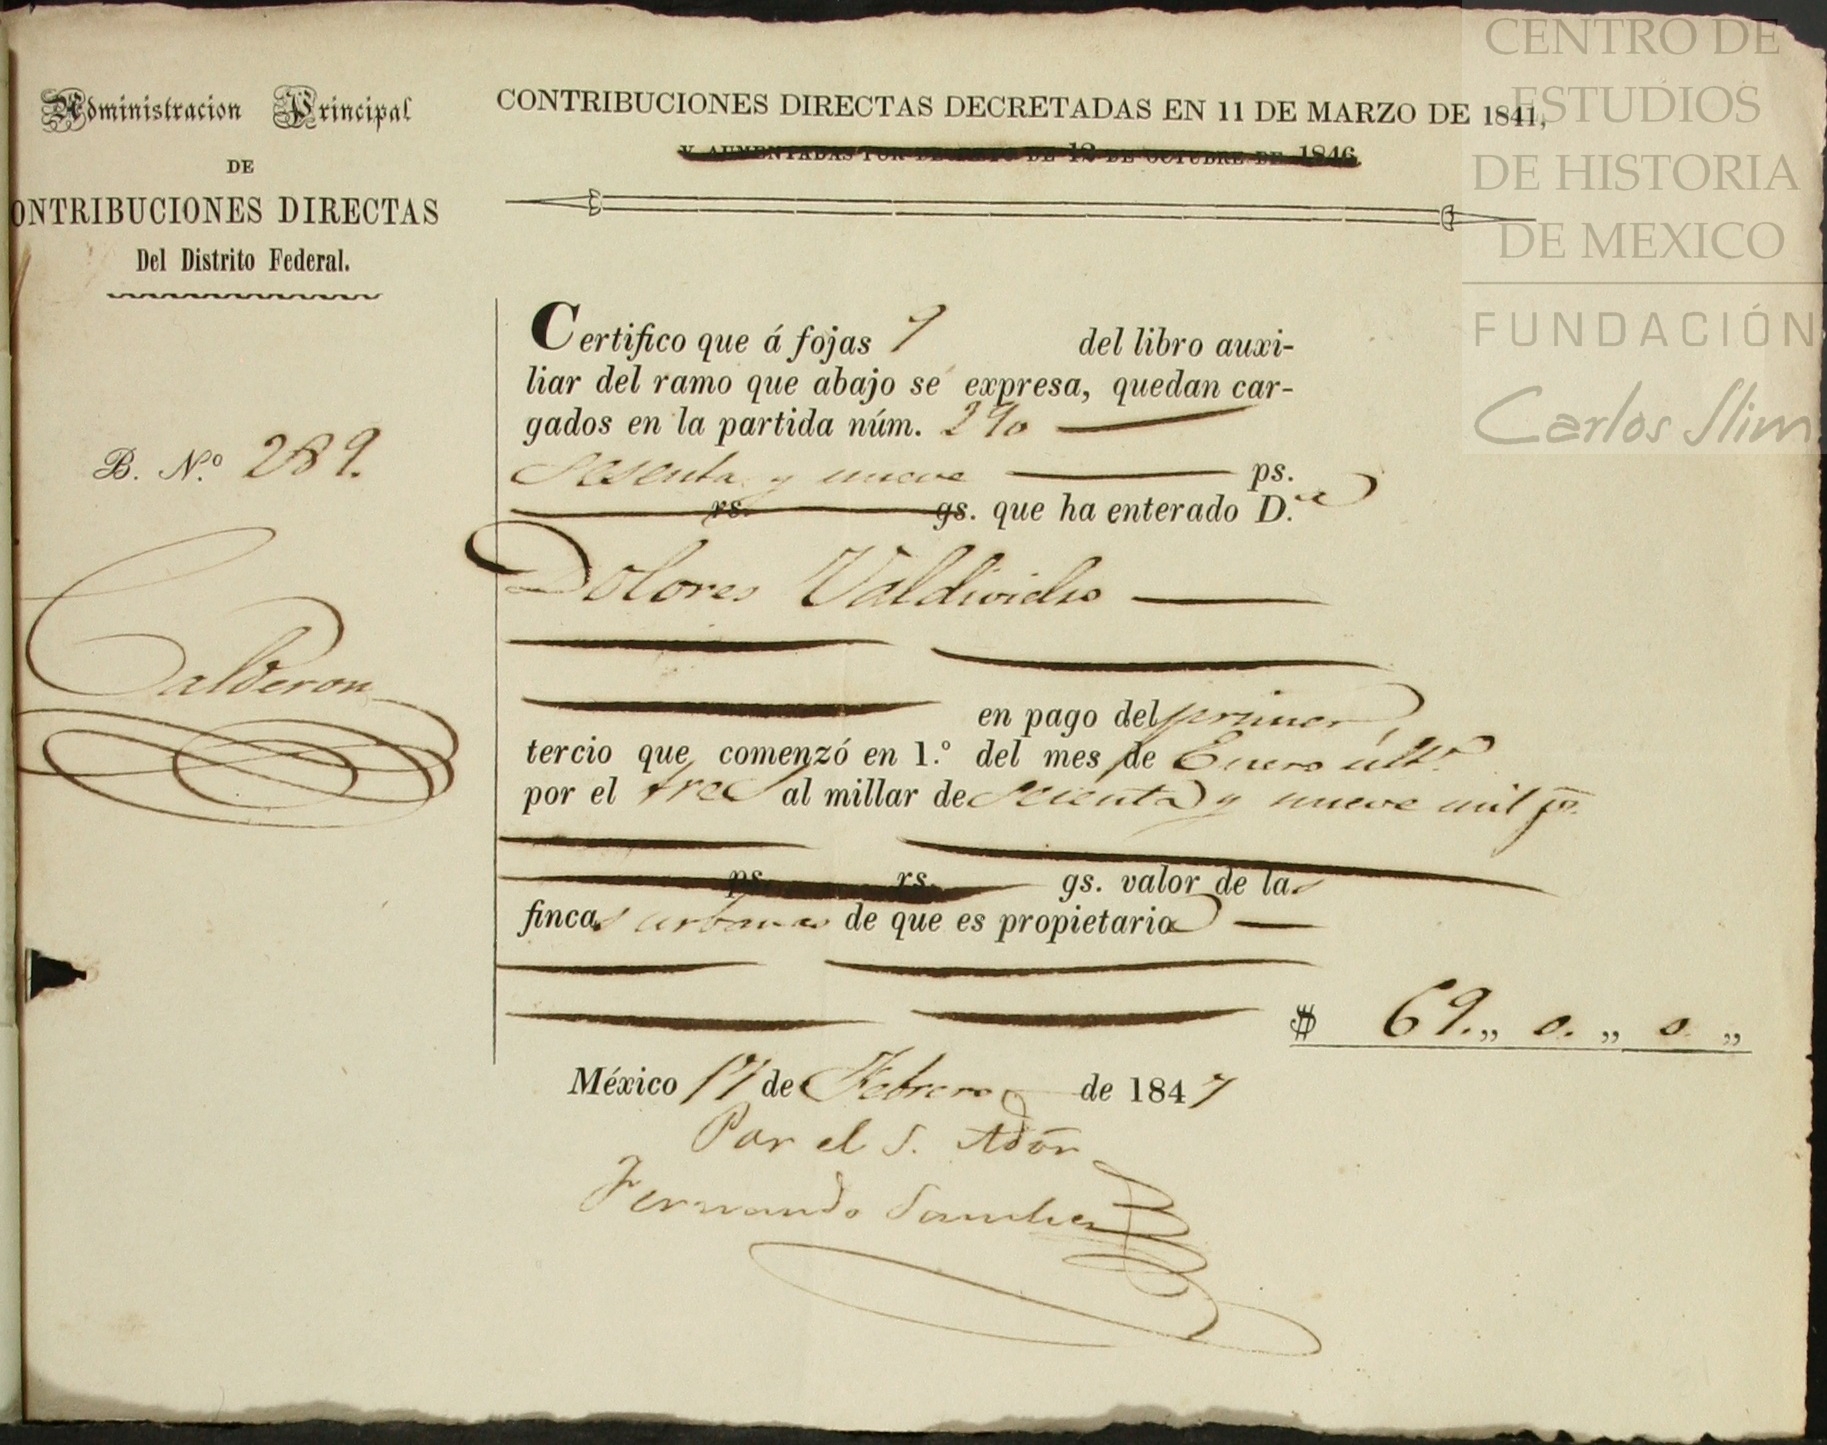 Administracion Principal
DE
ONTRIBUCIONES DIRECTAS
Del Distrito Federal.
B. N.º 289.
Calderon
CONTRIBUCIONES DIRECTAS DECRETADAS EN 11 DE MARZO DE 1841,
Y AUMENTADAS POR DECRETO DE 12 DE OCTUBRE DE 1846
Certifico que á fojas 7 del libro auxi-
liar del ramo que abajo se expresa, quedan car-
gados en la partida núm. 290
Sesenta y nueve ps.
rs. gs. que ha enterado D.ª
Dolores Valdivielso
en pago del primer
tercio que comenzó en 1.º del mes de Enero últº
por el tres al millar de sesenta y nueve mil ps.
ps. rs. gs. valor de las
fincas urbanas de que es propietaria
$ 69.,, 0. ,, 0 ,,
México 17 de Febrero de 1847
Por el S. Adōr
Fernando Sanchez
CENTRO DE
ESTUDIOS
DE HISTORIA
DE MEXICO
FUNDACIÓN
Carlos Slim